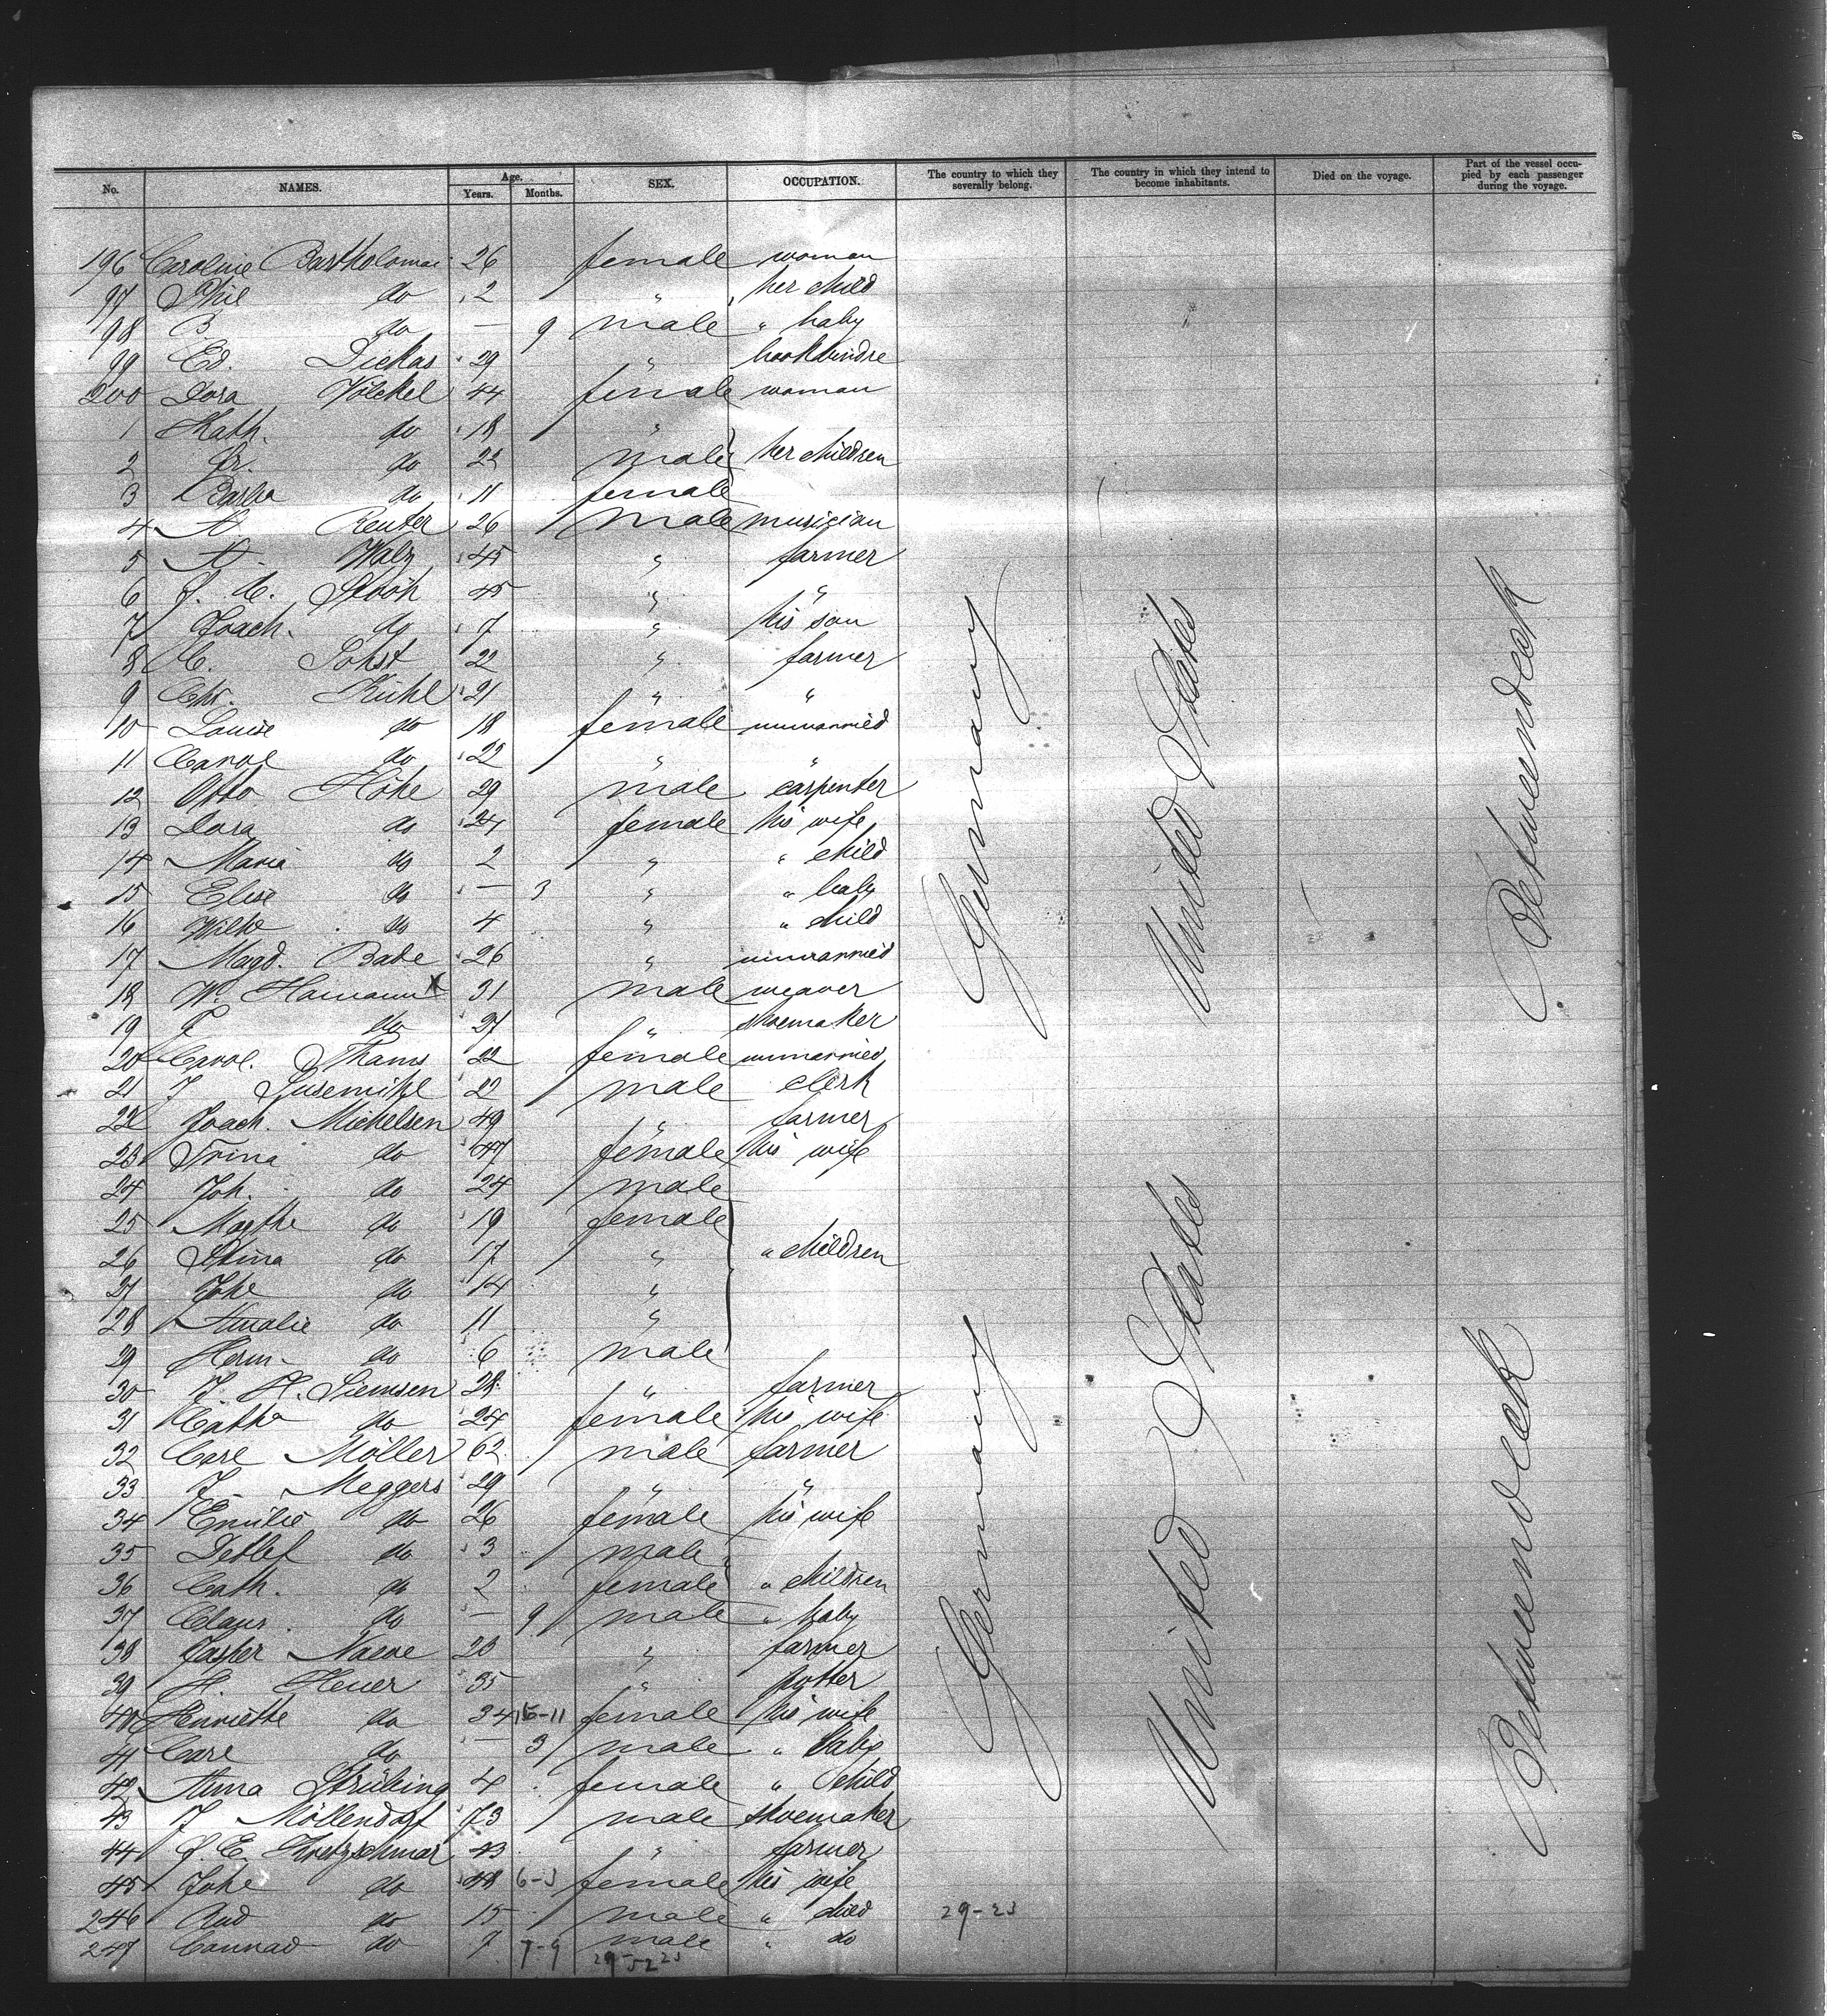 No. NAMES. Age. Years. Months. SEX. OCCUPATION. The country to which they severally belong. The country in which they intend to become inhabitants. Died on the voyage. Part of the vessel occupied by each passenger during the voyage.
196 Caroline Bartholomai 26 female woman
97 do 2 " her child
98 B do — 9 male " baby
99 Ed. Dickas 29 " bookbindre
200 Dora Völckel 44 female woman
1 Kath. do 18 "
2 Fr. do 22 male her children
3 Barba do 11 female
4 A Reuter 26 male musician
5 A. Walz 45 " farmer
6 J. C. 45 " "
7 Joach. do 7 " his son
8 C. Sohst 22 " farmer
9 Chr. Kühl 21 " "
10 Louise do 18 female unmarried
11 Carol do 22 " "
12 Otto Höhe 29 male carpenter
13 Dora do 24 female his wife
14 Maria do 2 " " child
15 Elise do — 3 " " baby
16 Wilhe do 4 " " child
17 Magd. Bade 26 " unmarried
18 W. Hamann X 31 male weaver
19 F do 27 " shoemaker
20 Carol. Thams 22 female unmarried
21 J Susemihl 22 male clerk
22 Joach. Michelsen 49 " farmer
23 Trina do 47 female his wife
24 Joh. do 24 male
25 Magthe do 19 female
26 Stina do 17 " " children
27 Johe do 14 "
28 Amalie do 11 "
29 Herm. do 6 male
30 J. H. Siemsen 28 " farmer
31 Cathe do 24 female his wife
32 Carl Möller 62 male farmer
33 J. Meggers 29 " "
34 Emilie do 26 female his wife
35 Detlef do 3 male
36 Cath. do 2 female " children
37 Claus do — 9 male " baby
38 Jasper Naeve 23 " farmer
39 H. Heuer 35 " potter
40 Henriette do 34 15-11 female his wife
41 Carl do — 3 male " baby
42 Anna Strübing 4 female " child
43 J Möllendorf 73 male shoemaker
44 F. E. Kretzschmar 43 " farmer
45 Johe do 48 6-3 female his wife
246 Rud do 15 male " child 29-23
247 Connad do 7 7-9 male " do
29 52 23
Germany United States Betweendeck
Germany United States Betweendeck